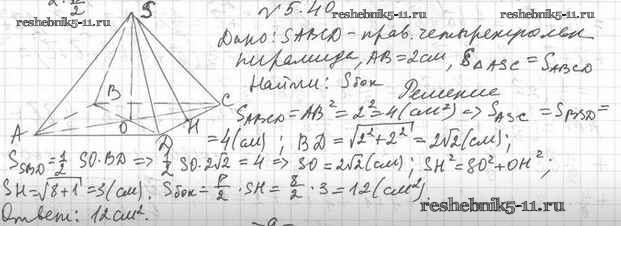 № 5.40
reshebnik5-11.ru
reshebnik5-11.ru
Дано: SABCD - прав. четырехугольн
пирамида, AB = 2 см, S△ASC = SABCD
Найти: Sбок
Решение
SABCD = AB² = 2² = 4 (см²) => SASC = SBSD =
= 4 (см) ; BD = √2²+2² = 2√2 (см);
SSBD = 1/2 SO·BD => 1/2 SO·2√2 = 4 => SO = 2√2 (см) ; SH² = SO² + OH² ;
SH = √8+1 = 3 (см). Sбок = P/2 · SH = 8/2 · 3 = 12 (см²)
Ответ: 12 см².
reshebnik5-11.ru
S
B
C
A
O
D
H